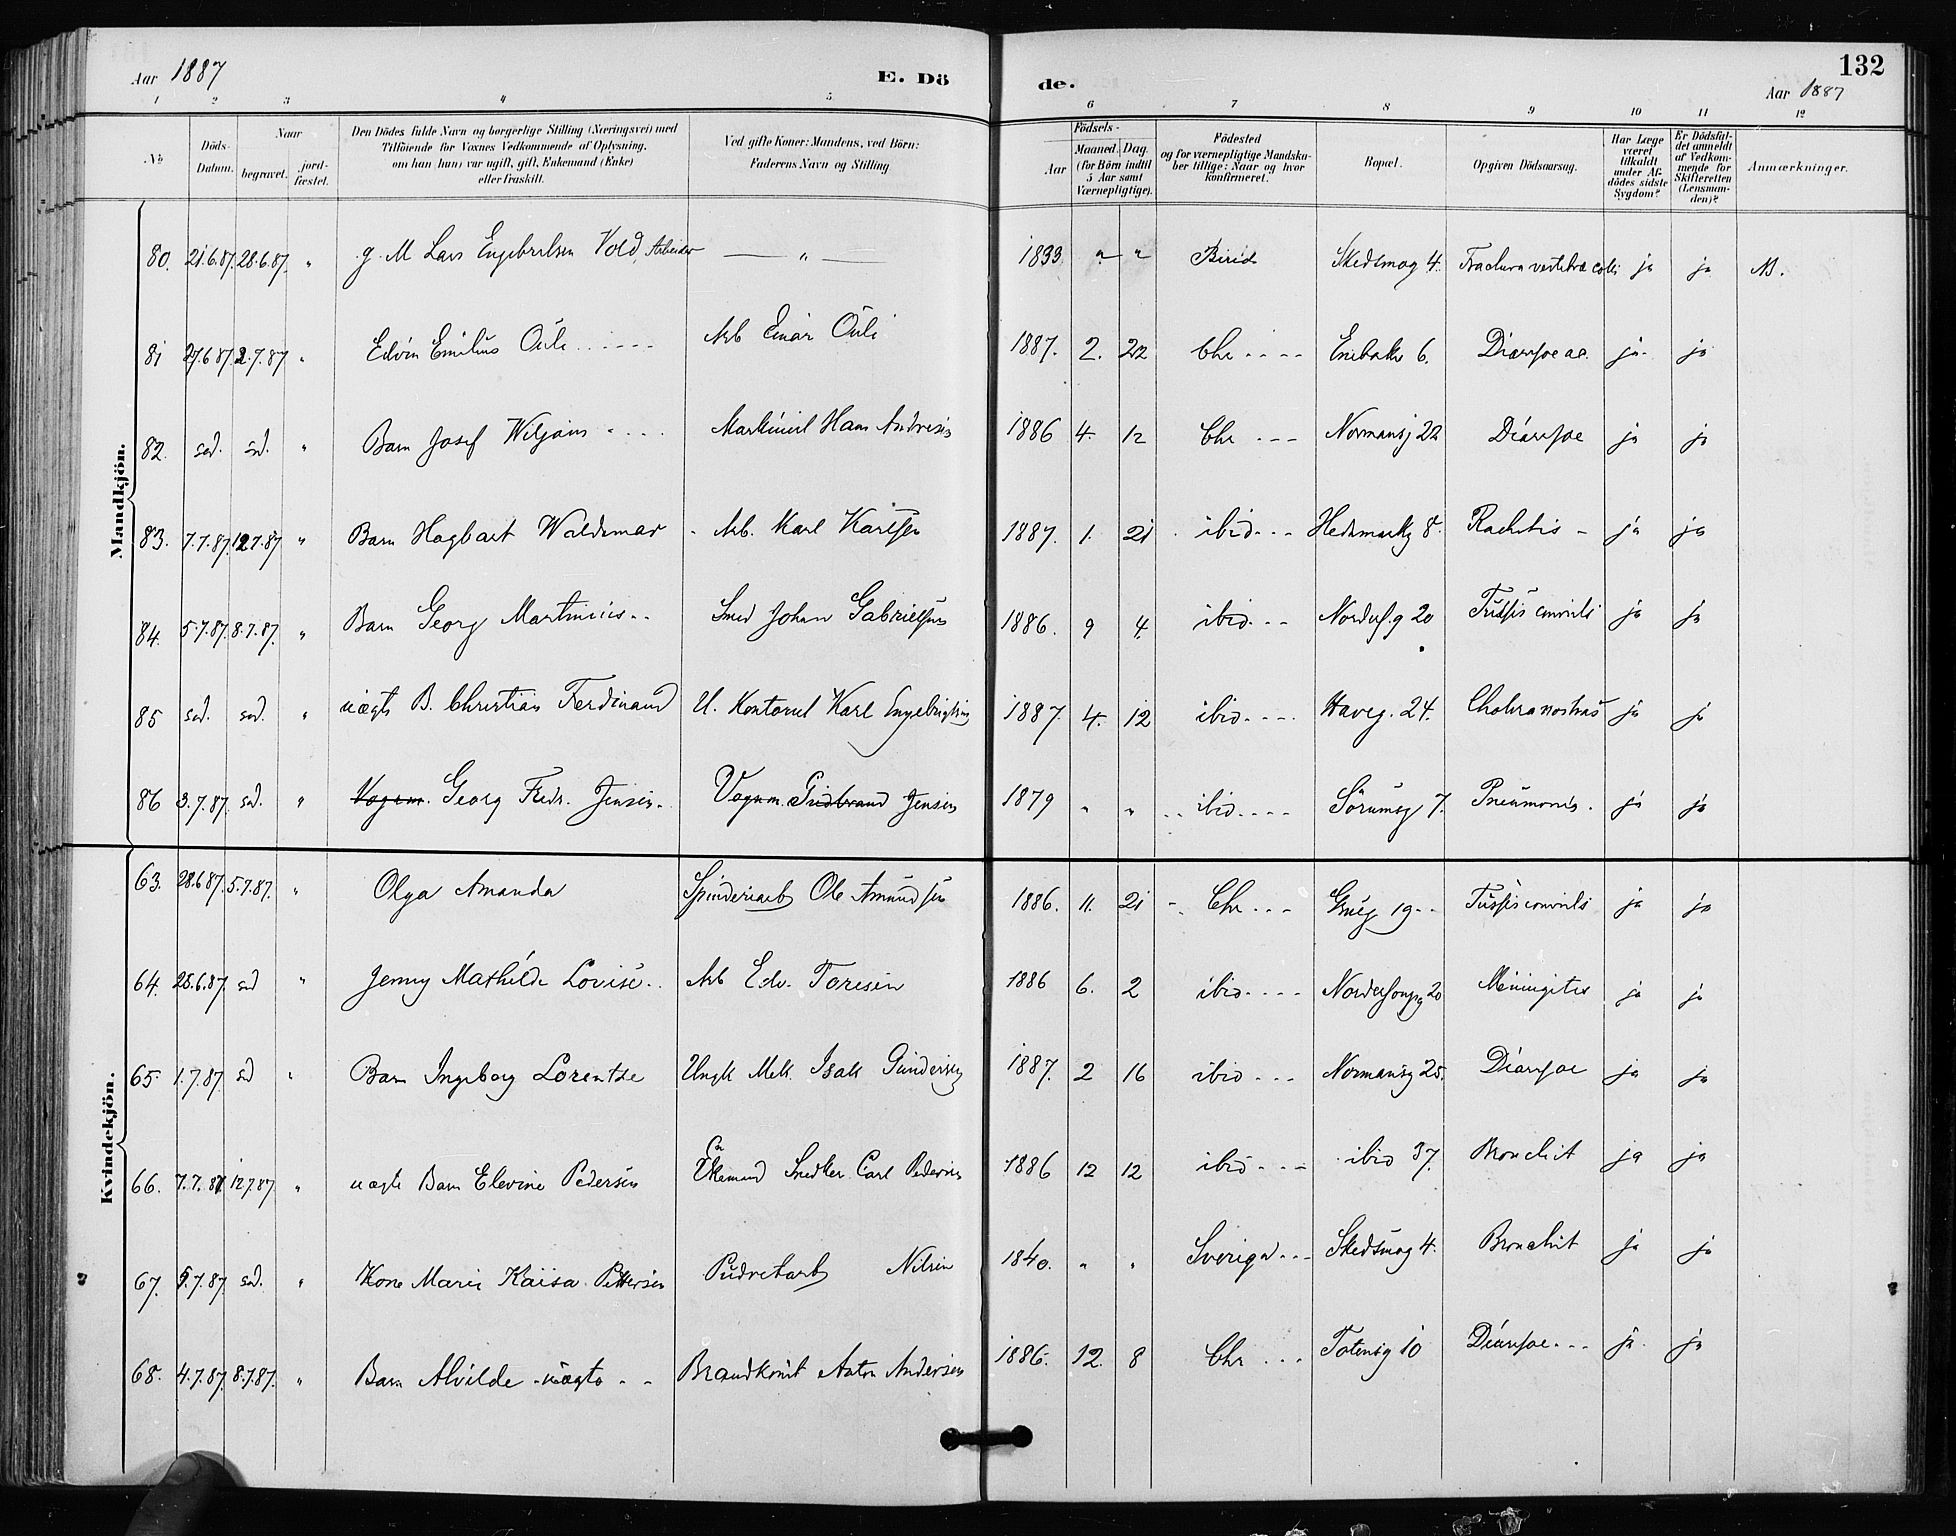 Aar 1887
E. Dö
de.
132
Aar 1887
1 2 3 4 5 6 7 8 9 10 11 12
No
Döds-Datum.
Naar
begravet.
jord-fæstet.
Den Dödes fulde Navn og borgerlige Stilling (Næringsvei) med
Tilföiende for Voxnes Vedkommende af Oplysning,
om han (hun) var ugift, gift, Enkemand (Enke)
eller fraskilt.
Ved gifte Koner: Mandens, ved Börn:
Faderens Navn og Stilling
Födsels-
Aar
Maaned. Dag.
(for Börn indtil
5 Aar samt
Værnepligtige).
Födested
og for værnepligtige Mandska-
ber tillige: Naar og hvor
konfirmeret.
Bopæl.
Opgiven Dödsaarsag.
Har Læge
været
tilkaldt
under Af-
dödes sidste
Sygdom?
Er Dödsfal-
det anmeldt
af Vedkom-
mende for
Skifteretten
(Lensman-
den)?
Anmærkninger.
Mandkjön.
80. 21.6.87. 28.6.87. " g. M Lars Engebretsen Vold, Arbeider — " — 1833 " " Birid Skedsmog 4. Fractura vertebræ colli ja ja NB.
81 27.6.87. 2.7.87 " Edvin Emilius Ouli Arb Einar Ouli 1887. 2. 22 Chr Enebakv 6. Diarrhoe ac. ja ja
82. sad. sad. " Barn Josef Wiljam Hans Andresen 1886 4. 12 Chr Normansg 22 Diarrhoe ja ja
83. 7.7.87. 12.7.87 " Barn Hagbart Waldemar Arb. Karl Karlsen 1887. 1. 21 ibid Hedemarkg 8. Rachitis ja ja
84. 5.7.87. 8.7.87. " Barn Georg Martinius Smed Johan Gabrielsen 1886. 9 4. ibid Norderh.g 20 Tussis convuls ja ja
85 sad. sad. " uægte B. Christian Ferdinand U. Kontorist Karl Engebrigtsen 1887. 4. 12 ibid Haveg. 24. Cholera nostras ja ja
86 3.7.87. sad. " Vognm. Georg Fredr. Jensen Vognm. Gudbrand Jensen 1879 " " ibid Sörumsg 7. Pneumonis. ja ja
Kvindekjön.
63. 28.6.87. 5.7.87. " Olga Amanda Spinderiarb Ole Amundsen 1886. 11. 21 Chr Grueg 19 Tussis convuls ja ja
64. 28.6.87. sad " Jenny Mathilde Lovise Arb Edv. Toresen 1886 6. 2 ibid Norderhougsg 20 Meningites ja ja
65. 1.7.87. sad " Barn Ingeborg Lorentze Ungk Mek. Isak Gundersen 1887. 2 16 ibid Normansg 25. Diarrhoe ja ja
66. 7.7.87 12.7.87. " uægte Barn Elevine Pedersen Enkemand Snedker Carl Pedersen 1886 12 12 ibid ibid 37. Bronchit ja ja
67. 5.7.87 sad. " Kone Marie Kaisa Pettersen Pudretarb Nilsen 1840. " " Sverige Skedsmog 4. Bronchit ja ja
68. 4.7.87. 8.7.87. " Barn Alvilde uægte Brandkonst Anton Andersen 1886. 12. 8 Chr Totensg 10 Diarrhoe ja ja